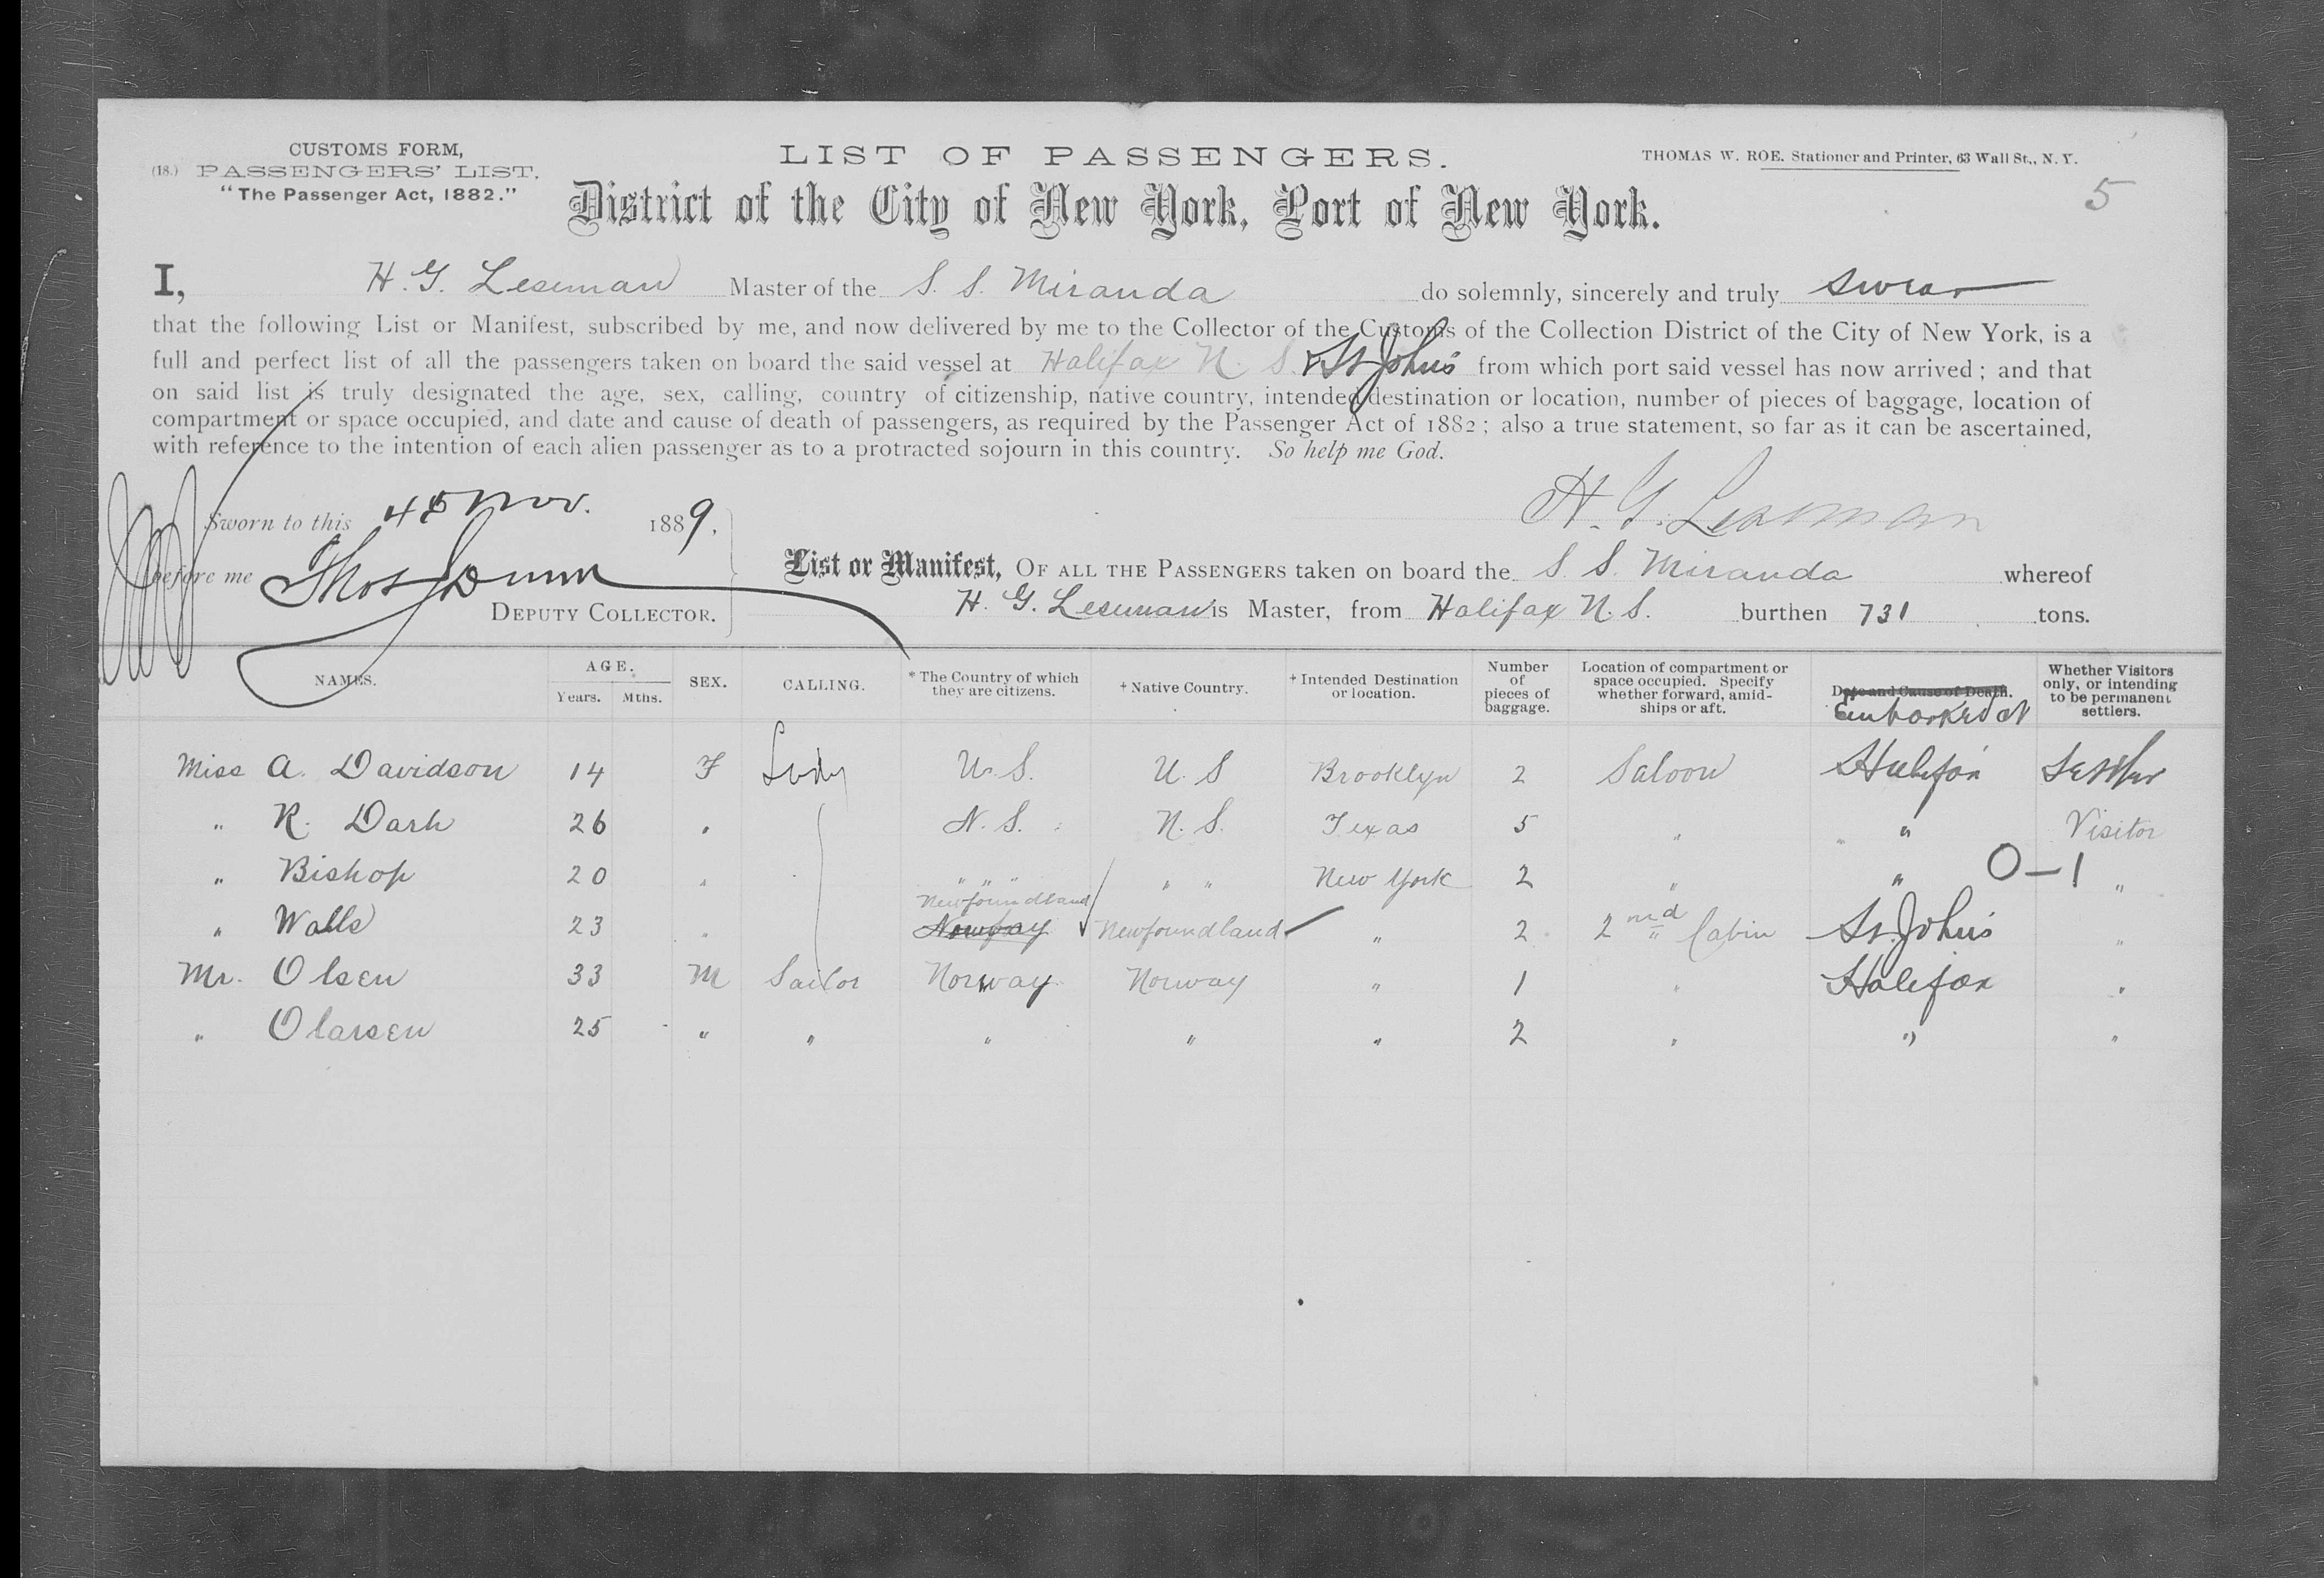 CUSTOMS FORM,
(18.) PASSENGERS' LIST.
"The Passenger Act, 1882."
LIST OF PASSENGERS.
THOMAS W. ROE, Stationer and Printer, 63 Wall St., N. Y.
5
District of the City of New York, Port of New York.
I, H. G. Leseman Master of the S. S. Miranda do solemnly, sincerely and truly swear
that the following List or Manifest, subscribed by me, and now delivered by me to the Collector of the Customs of the Collection District of the City of New York, is a
full and perfect list of all the passengers taken on board the said vessel at Halifax N. S. & St Johns from which port said vessel has now arrived; and that
on said list is truly designated the age, sex, calling, country of citizenship, native country, intended destination or location, number of pieces of baggage, location of
compartment or space occupied, and date and cause of death of passengers, as required by the Passenger Act of 1882; also a true statement, so far as it can be ascertained,
with reference to the intention of each alien passenger as to a protracted sojourn in this country. So help me God.
H. G. Leseman
Sworn to this Nov. 1889,
before me Thos Dunn
DEPUTY COLLECTOR.
List or Manifest, OF ALL THE PASSENGERS taken on board the S. S. Miranda whereof
H. G. Leseman is Master, from Halifax N. S. burthen 731 tons.
NAMES. AGE. Years. Mths. SEX. CALLING. * The Country of which they are citizens. † Native Country. † Intended Destination or location. Number of pieces of baggage. Location of compartment or space occupied. Specify whether forward, amidships or aft. Date and Cause of Death. Embarked at Whether Visitors only, or intending to be permanent settlers.
Miss A. Davidson 14 F Lady U. S. U. S Brooklyn 2 Saloon Halifax Settler
" R. Dark 26 " N. S. N. S. Texas 5 " " Visitor
" Bishop 20 " " " " " " New York 2 " " 0-1 "
" Walls 23 " Newfoundland Norway Newfoundland " 2 2nd " Cabin St. Johns "
Mr. Olsen 33 M Sailor Norway Norway " 1 " Halifax "
" Olarsen 25 " " " " " 2 " " "